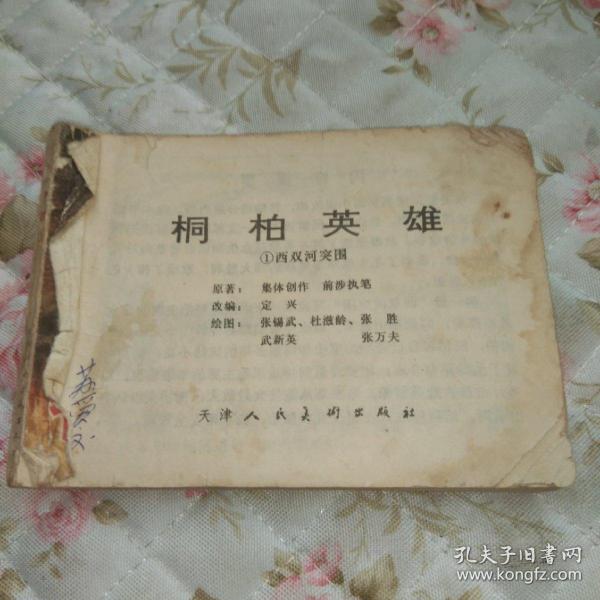 桐柏英雄
①西双河突围
原著： 集体创作 前涉执笔
改编： 定兴
绘图： 张锡武、杜滋龄、张胜
武新英 张万夫
天津人民美术出版社
孔夫子旧书网
www.kongfz.com